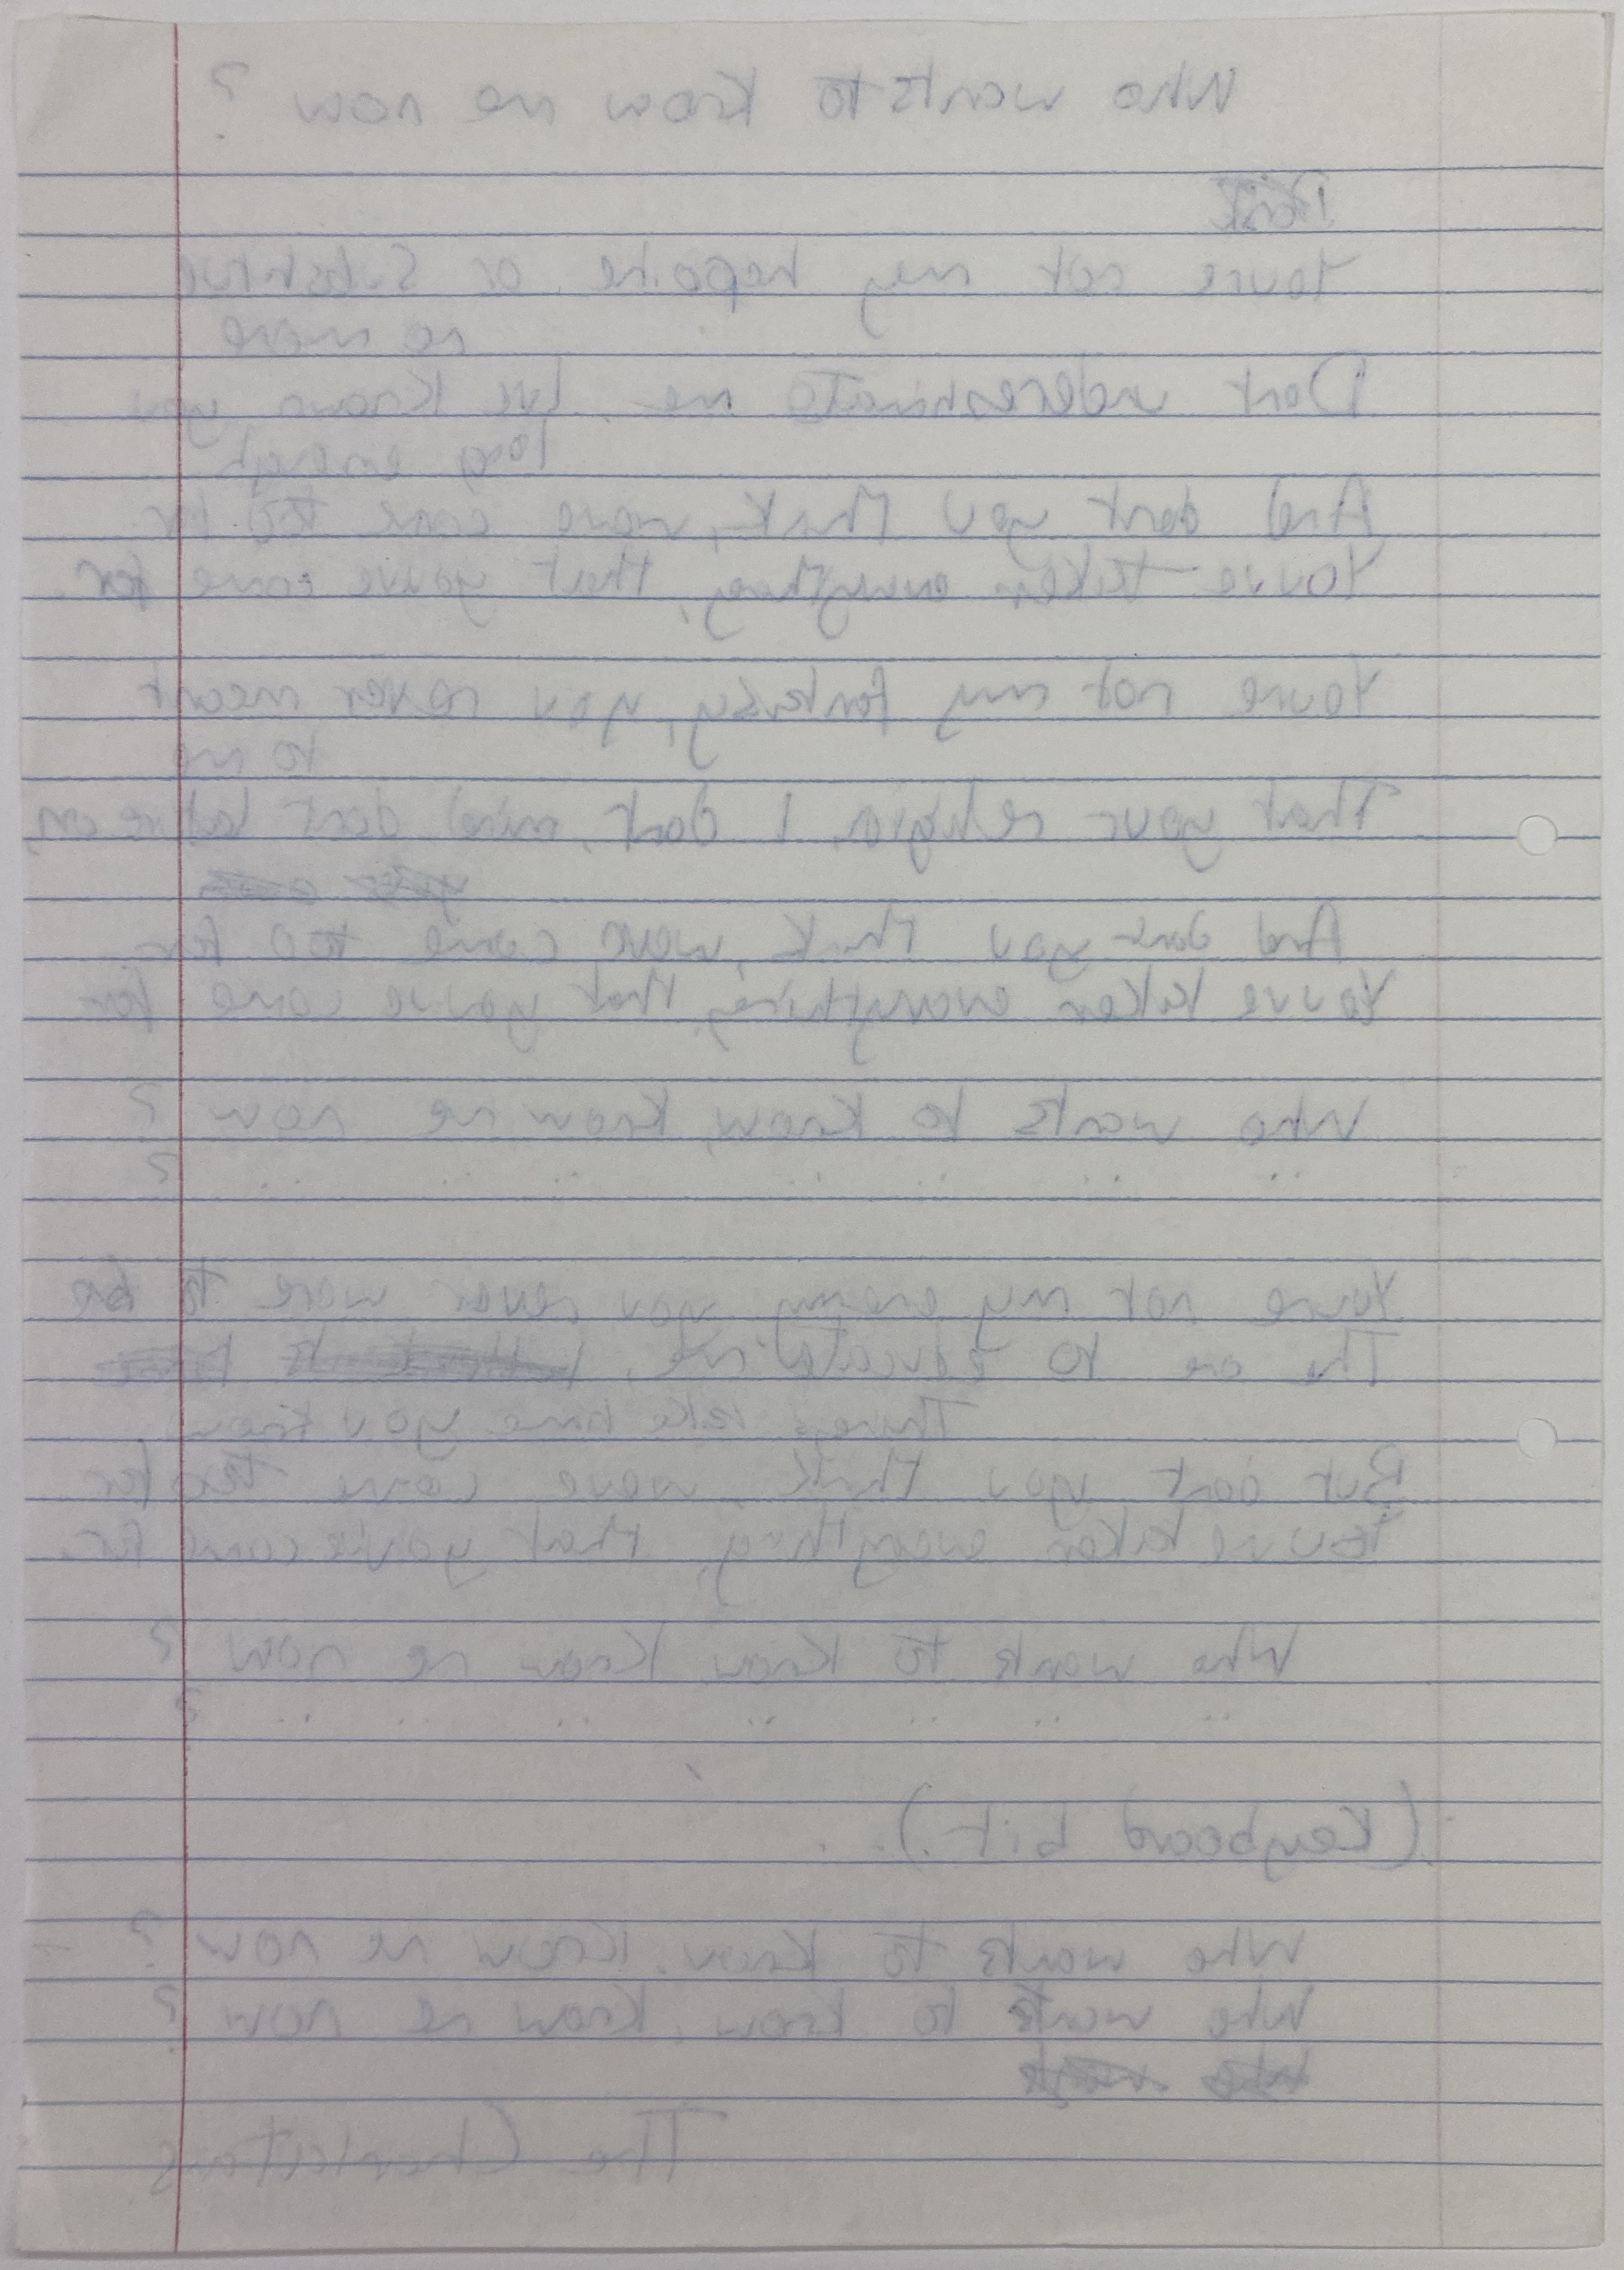 Who wants to know me now ?
Youre not my heroine or substitute
no more
Dont underestimate me, Ive known you
long enough
And dont you think, weve come too far
Youve taken everything, that youve come for.
Youre not my fantasy, you never meant
to me
That your religion, I dont mind dont
And dont you think, weve come too far.
Youve taken everything, that youve come for
Who wants to know, know me now ?
.. .. .. .. .. .. .. ?
Youre not my enemy you never were to be
The one to educate me,
Things take time you know
But dont you think, weve come too far
Youve taken everything, that you've come for.
Who wants to know know me now ?
.. .. .. .. .. .. .. ?
(Keyboard bit.) . .
Who wants to know. Know me now ?
Who wants to know, know me now ?
The Charlatans